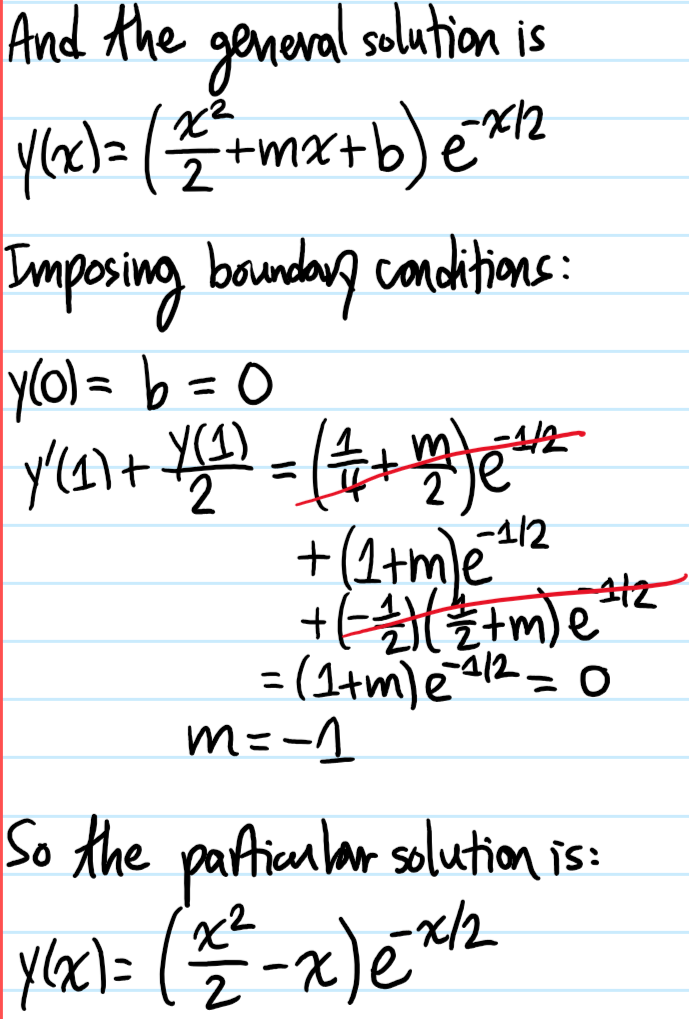 And the general solution is
y(x)=(x²/2+mx+b)e^(-x/2)
Imposing boundary conditions:
y(0)= b = 0
y'(1)+y(1)/2=(1/4+m/2)e^(-1/2)
+(1+m)e^(-1/2)
+(-1/2)(1/2+m)e^(-1/2)
=(1+m)e^(-1/2)=0
m=-1
So the particular solution is:
y(x)=(x²/2-x)e^(-x/2)